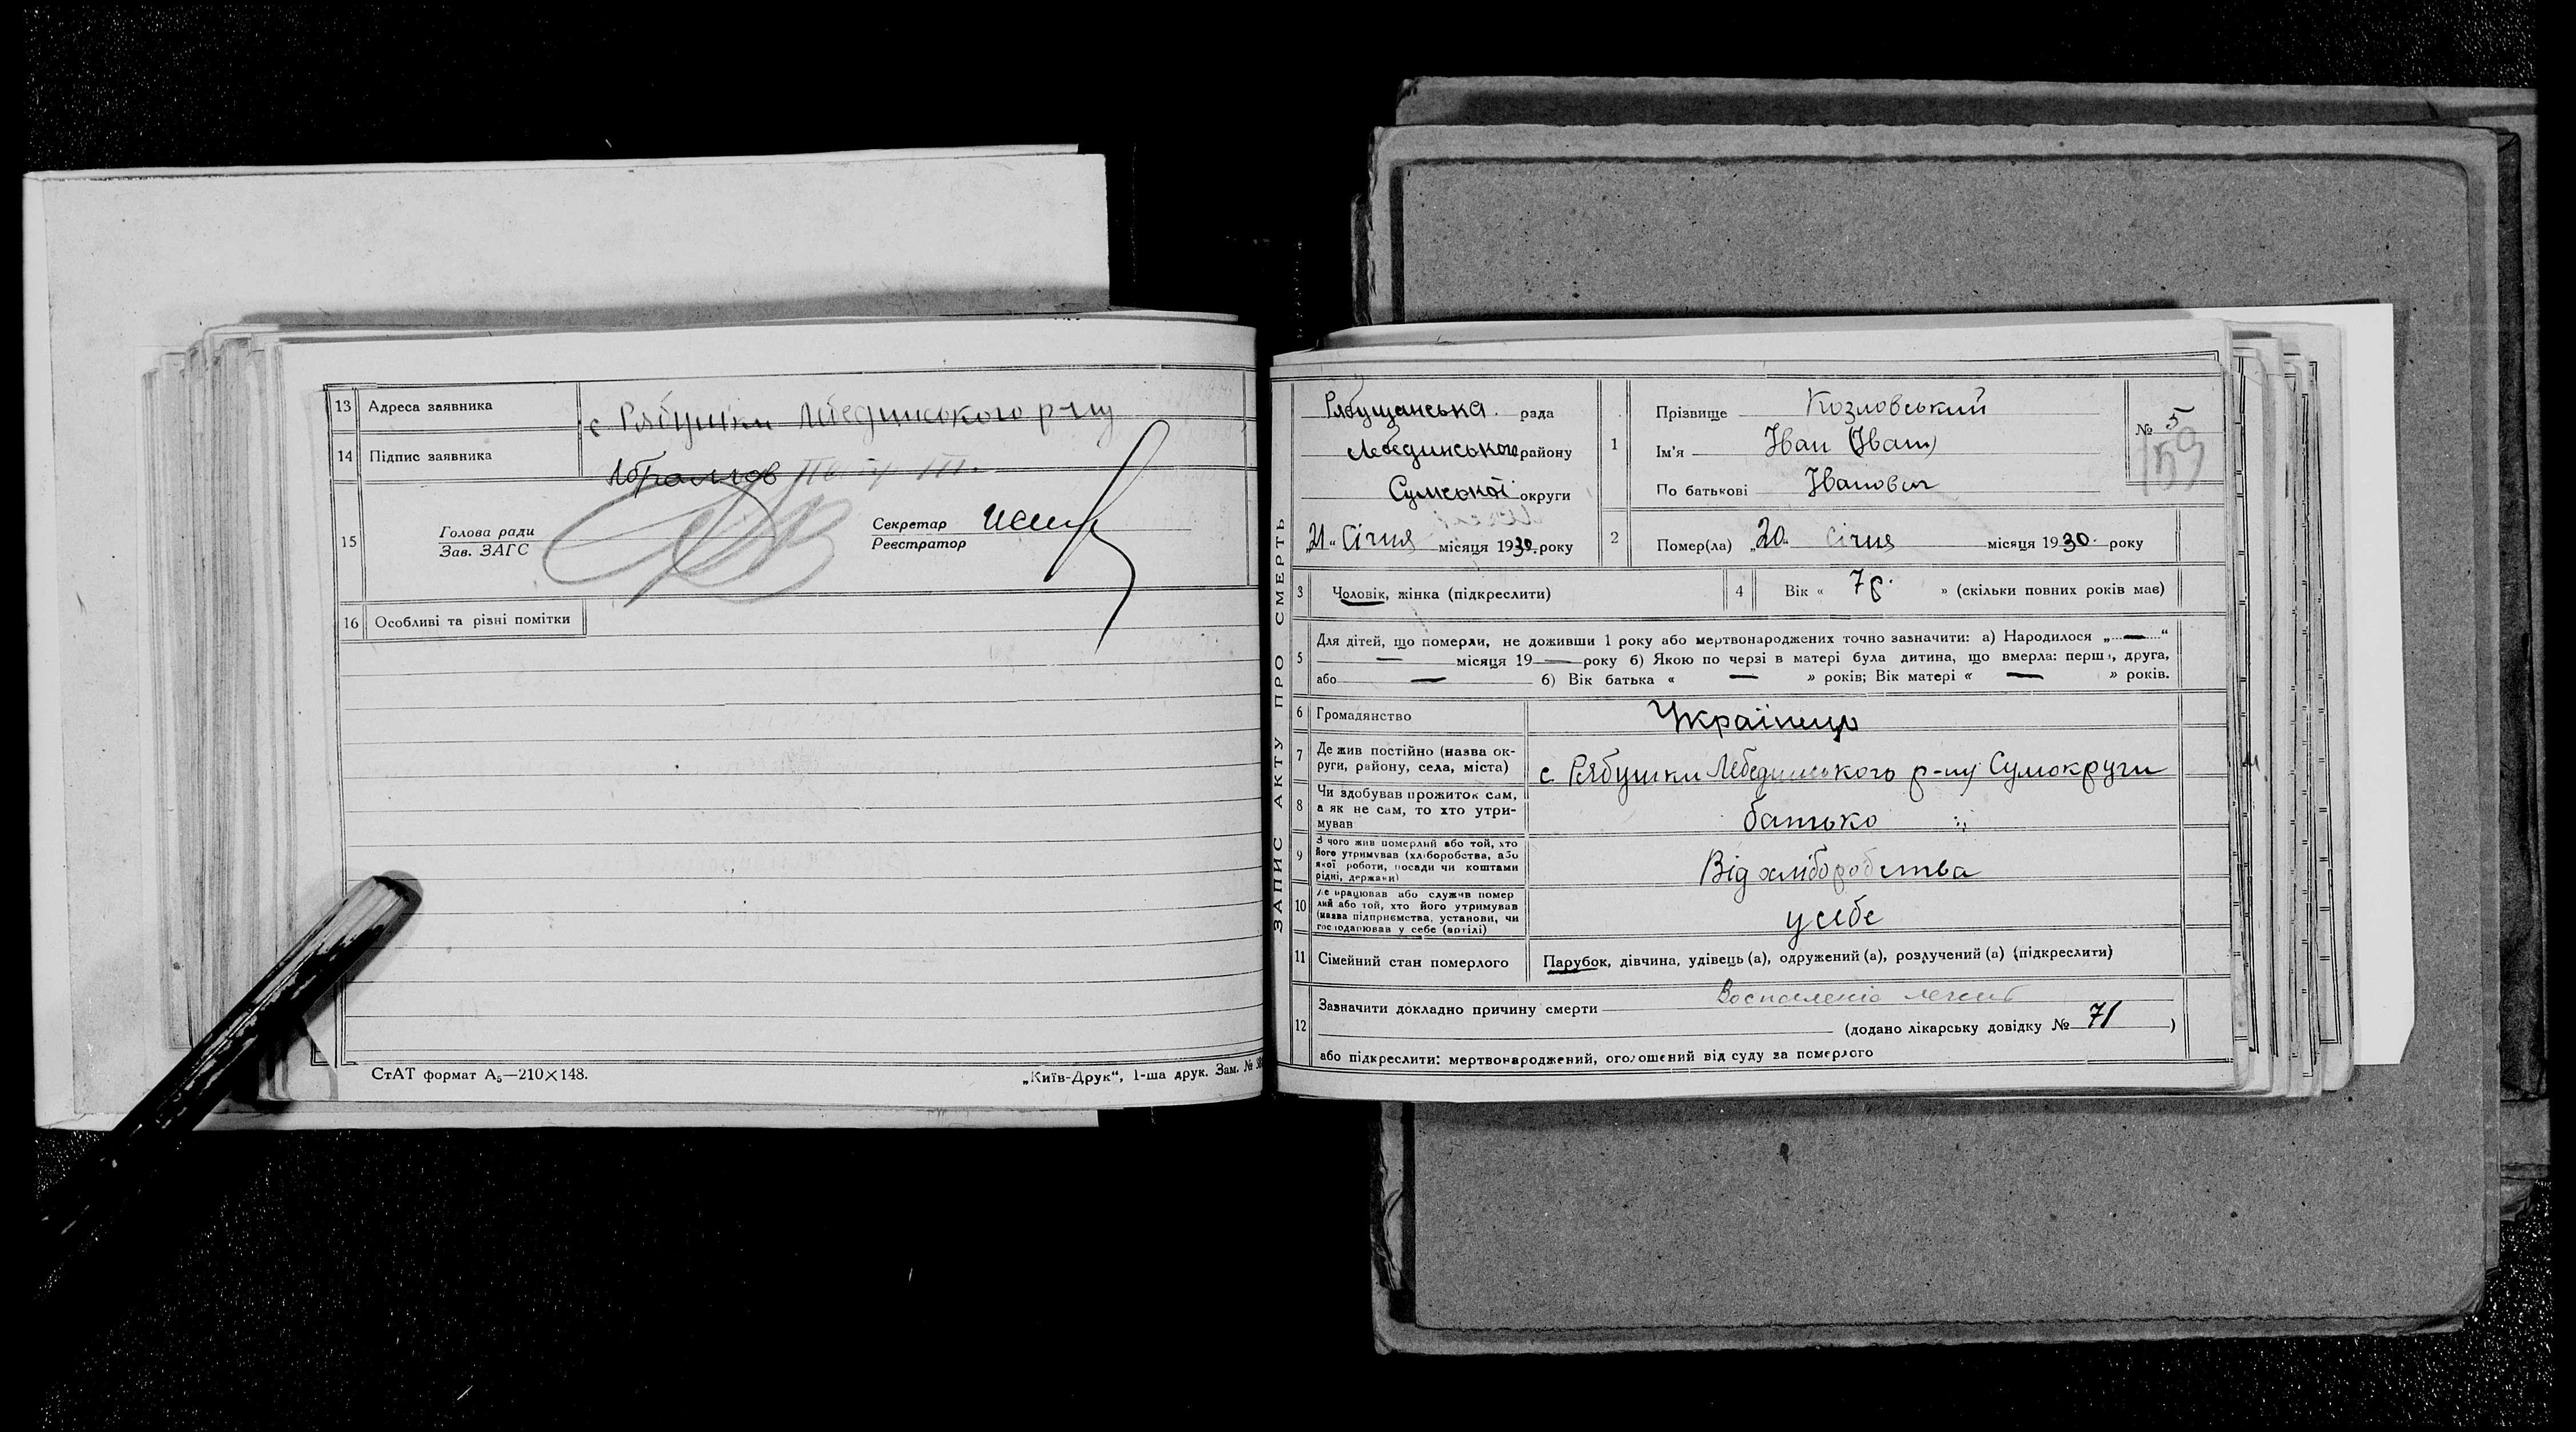 13 Адреса заявника с Рябушки Лебединського р-ну
14 Підпис заявника Абрамов
15 Голова ради
Зав. ЗАГС
Секретар
Реєстратор
16 Особливі та різні помітки
СтАТ формат А5—210×148.
„Київ-Друк“, 1-ша друк. Зам. №
ЗАПИС АКТУ ПРО СМЕРТЬ
Рябущанська рада
Лебединського району
Сумської округи
„21“ Січня місяця 1930 року
1 Прізвище Козловський
Ім'я Іван (Іван)
По батькові Іванович
№ 5
159
2 Помер(ла) „20 січня місяця 1930 року
3 Чоловік, жінка (підкреслити)
4 Вік « 7 р. » (скільки повних років має)
5 Для дітей, що померли, не доживши 1 року або мертвонароджених точно зазначити: а) Народилося „—“
— місяця 19 — року б) Якою по черзі в матері була дитина, що вмерла: перша, друга,
або — б) Вік батька « — » років; Вік матері « — » років.
6 Громадянство Українець
7 Де жив постійно (назва ок-
руги, району, села, міста) с. Рябушки Лебединського р-ну Сумокруги
8 Чи здобував прожиток сам,
а як не сам, то хто утри-
мував батько
9 З чого жив померлий або той, хто
його утримував (хліборобства, або
якої роботи, посади чи коштами
рідні, держави) Від хліборобства
10 Де працював або служив помер
лий або той, хто його утримував
(назва підприємства, установи, чи
господарював у себе (артілі) у себе
11 Сімейний стан померлого Парубок, дівчина, удівець (а), одружений (а), розлучений (а) (підкреслити)
12 Зазначити докладно причину смерти Воспаленіє легких
(додано лікарську довідку № 71)
або підкреслити: мертвонароджений, оголошений від суду за померлого